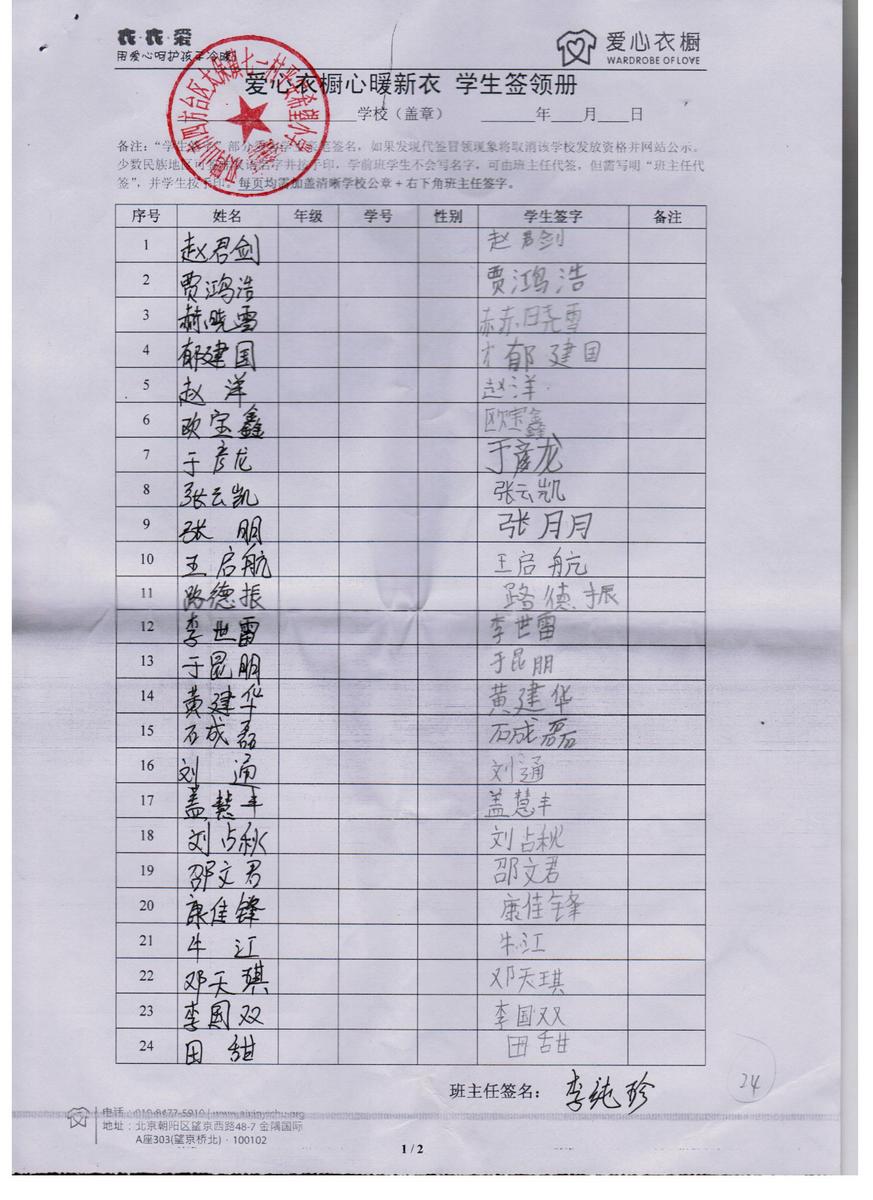 衣·衣·爱
用爱心呵护孩子冷暖!
爱心衣橱
WARDROBE OF LOVE
爱心衣橱心暖新衣 学生签领册
学校（盖章） 年 月 日
备注：“学生签字”部分
签名，如果发现代签冒领现象将取消该学校发放资格并网站公示。
少数民族地区可
名字并按手印，学前班学生不会写名字，可由班主任代签，但需写明“班主任代
签”，并学生按手印。每页均需加盖清晰学校公章+右下角班主任签字。
序号 姓名 年级 学号 性别 学生签字 备注
1 赵君剑 赵君剑
2 贾鸿浩 贾鸿浩
3 赫晓雪 赫晓雪
4 郁建国 郁建国
5 赵洋 赵洋
6 欧宝鑫 欧宝鑫
7 于彦龙 于彦龙
8 张云凯 张云凯
9 张明 张明
10 王启航 王启航
11 路德振 路德振
12 李世雷 李世雷
13 于昆朋 于昆朋
14 黄建华 黄建华
15 石成磊 石成磊
16 刘通 刘通
17 盖慧丰 盖慧丰
18 刘占秋 刘占秋
19 邵文君 邵文君
20 康佳锋 康佳锋
21 牛江 牛江
22 邓天琪 邓天琪
23 李国双 李国双
24 田甜 田甜
班主任签名： 李纯珍
24
电话：010-8477-5910 | www.aixinyichu.org
地址：北京朝阳区望京西路48-7 金隅国际
A座303(望京桥北)·100102
1 / 2